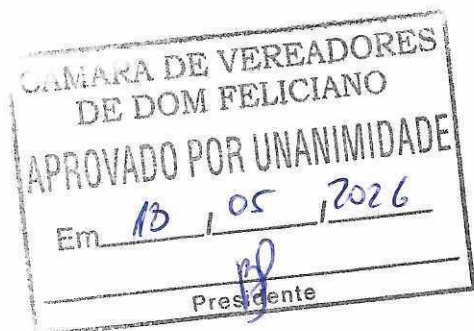 CÂMARA DE VEREADORES
DE DOM FELICIANO
APROVADO POR UNANIMIDADE
Em 13 / 05 / 2026
Presidente